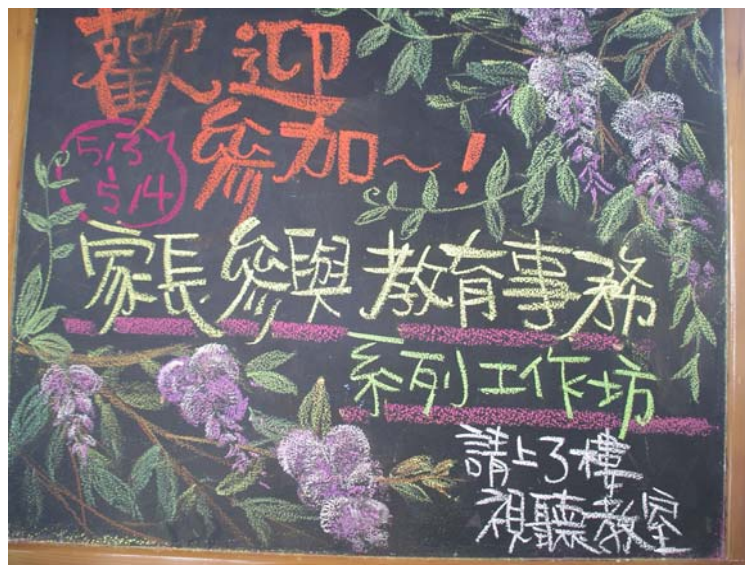 歡迎
參加～！
5/3
5/4
家長參與教育事務
系列工作坊
請上3樓
視聽教室